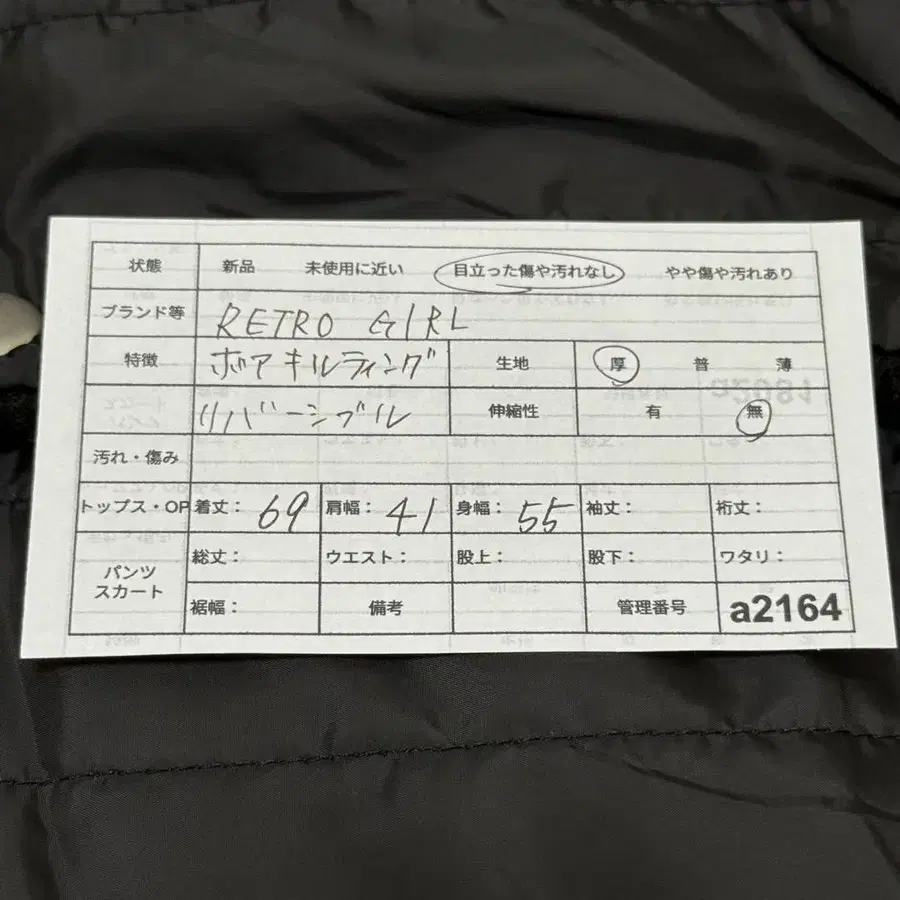 状態 新品 未使用に近い 目立った傷や汚れなし やや傷や汚れあり
ブランド等 RETRO GIRL
特徴 ボアキルティング 生地 厚 普 薄
リバーシブル 伸縮性 有 無
汚れ・傷み
トップス・OP 着丈： 69 肩幅： 41 身幅： 55 袖丈： 裄丈：
パンツ スカート 総丈： ウエスト： 股上： 股下： ワタリ：
裾幅： 備考 管理番号 a2164